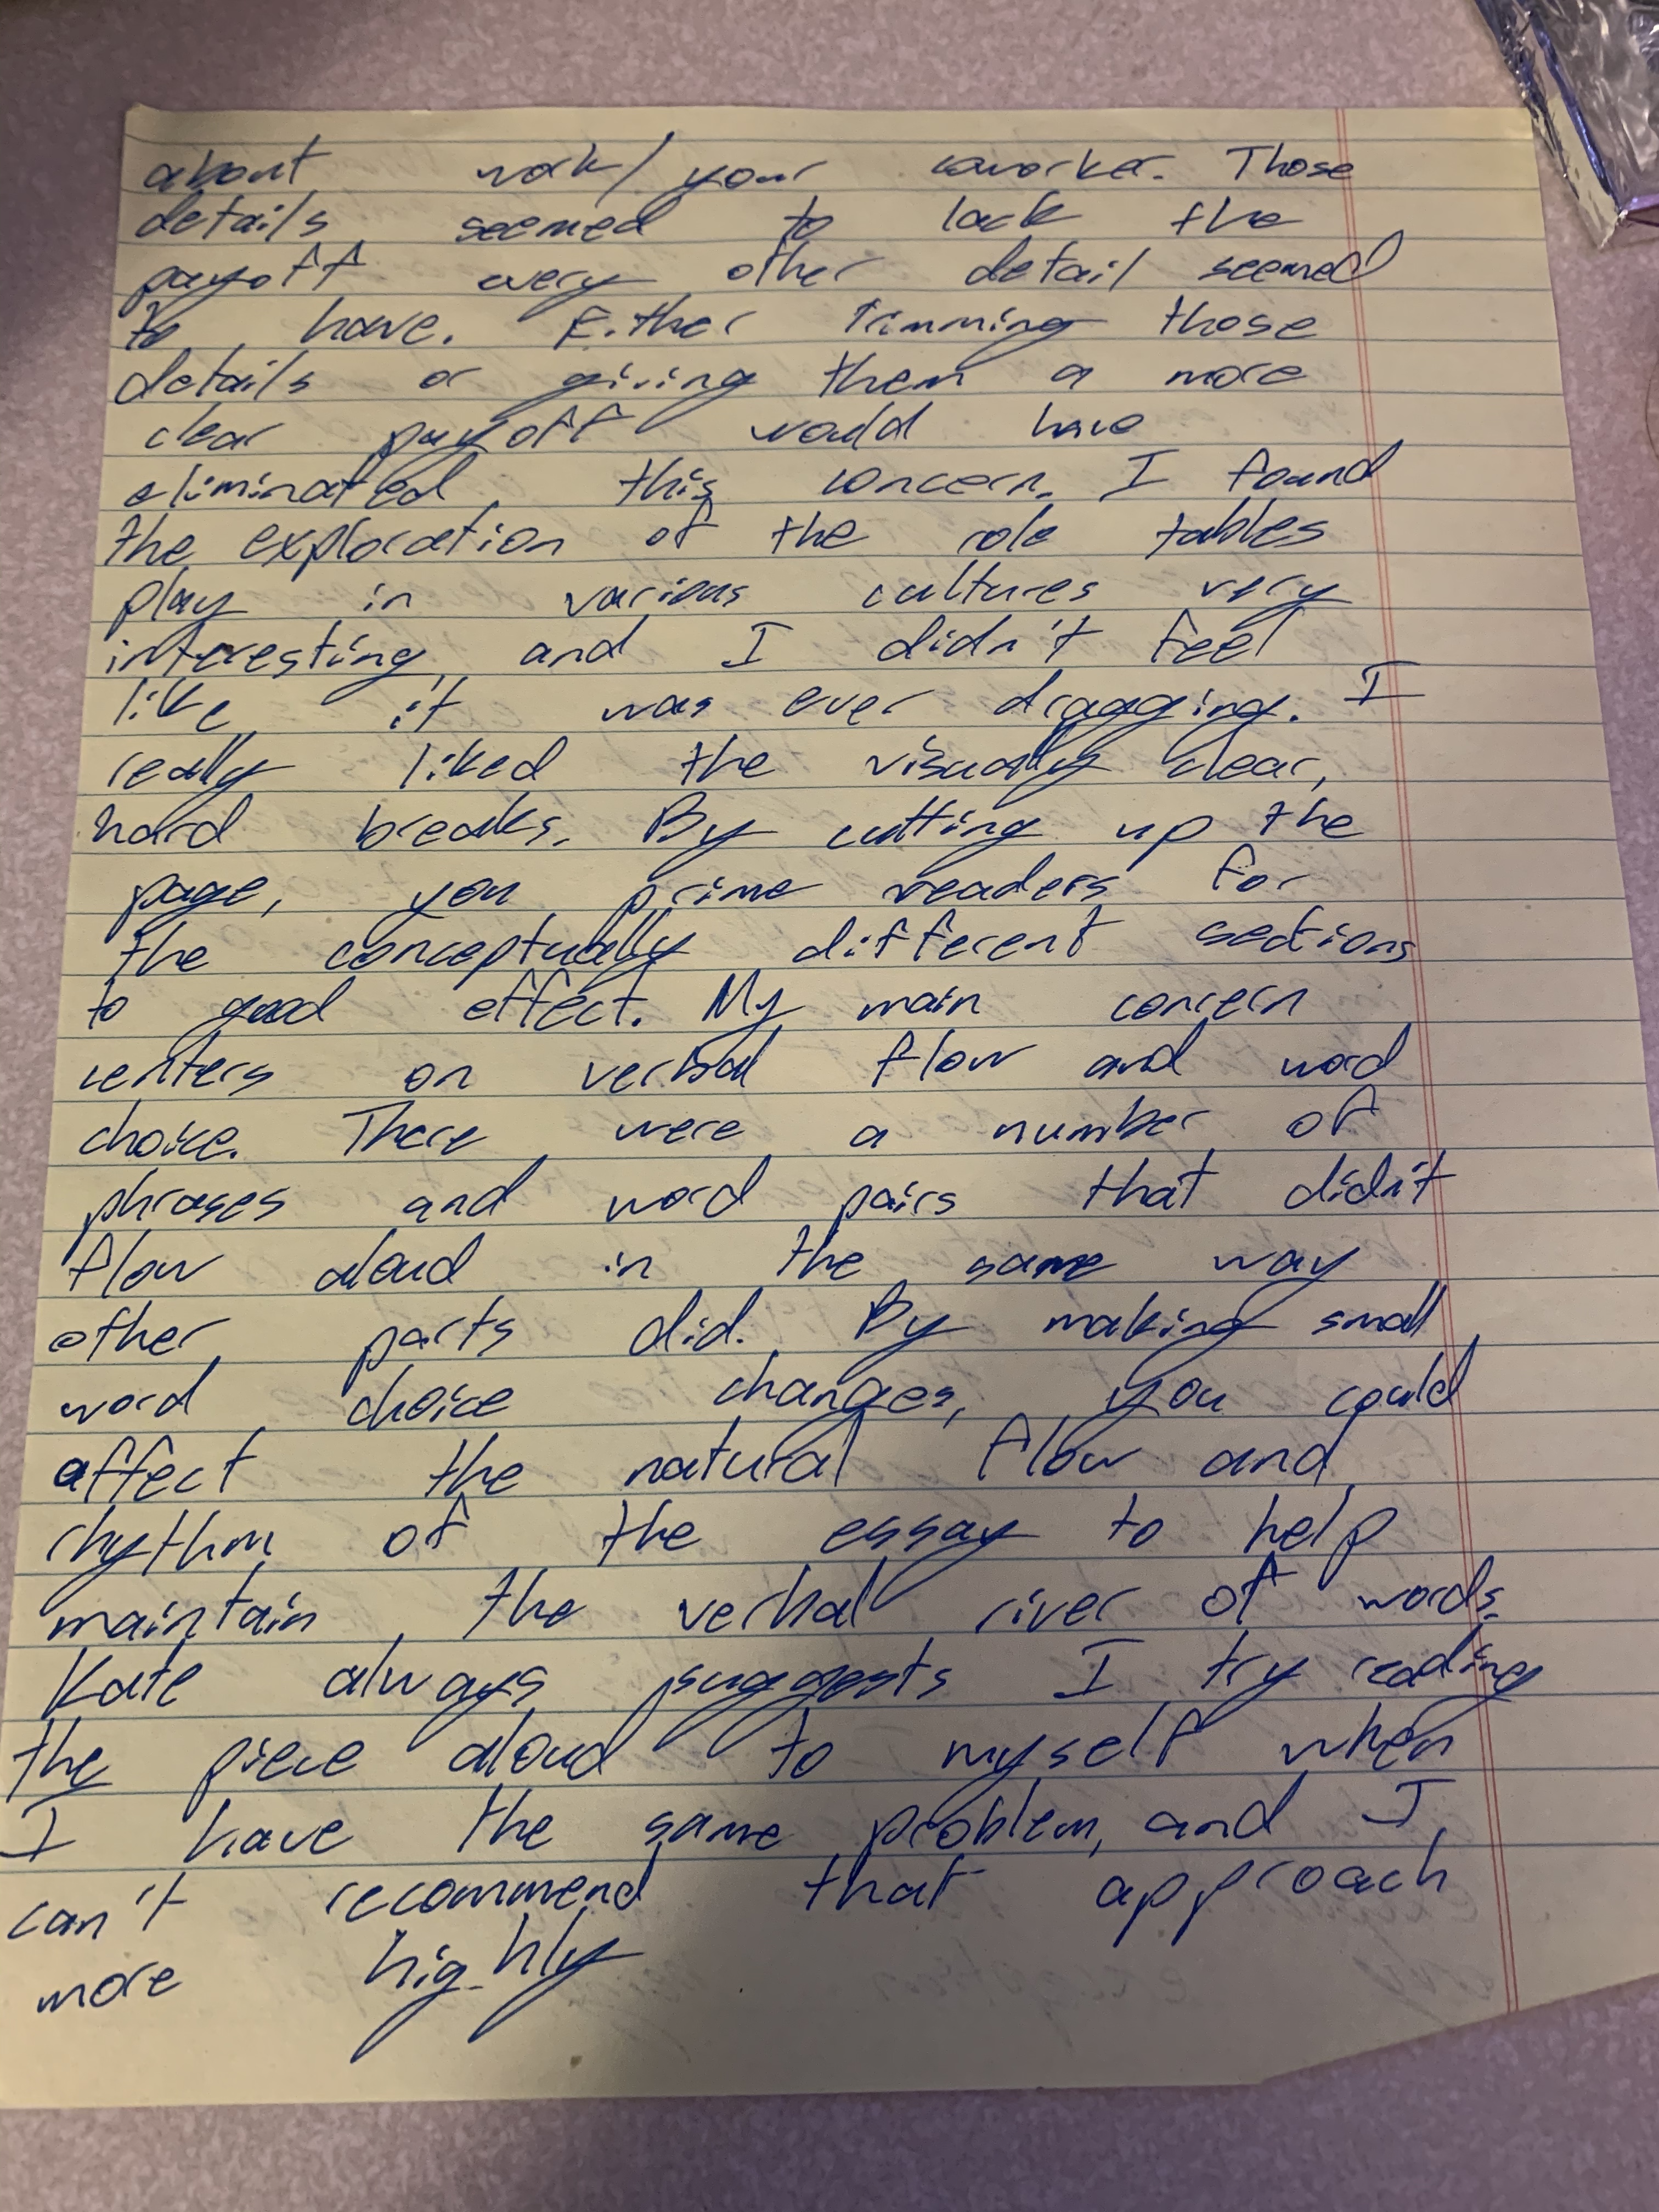 about work/your coworker. Those
details seemed to lack the
payoff every other detail seemed
to have. Either trimming those
details or giving them a more
clear payoff would have
eliminated this concern. I found
the exploration of the role tables
play in various cultures very
interesting, and I didn't feel
like it was ever dragging. I
really liked the visually clear,
hard breaks. By cutting up the
page, you prime readers for
the conceptually different sections
to good effect. My main concern
centers on verbal flow and word
choice. There were a number of
phrases and word pairs that didn't
flow aloud in the same way
other parts did. By making small
word choice changes, you could
affect the natural flow and
rhythm of the essay to help
maintain the verbal river of words.
Kate always suggests I try reading
the piece aloud to myself when
I have the same problem, and I
can't recommend that approach
more highly